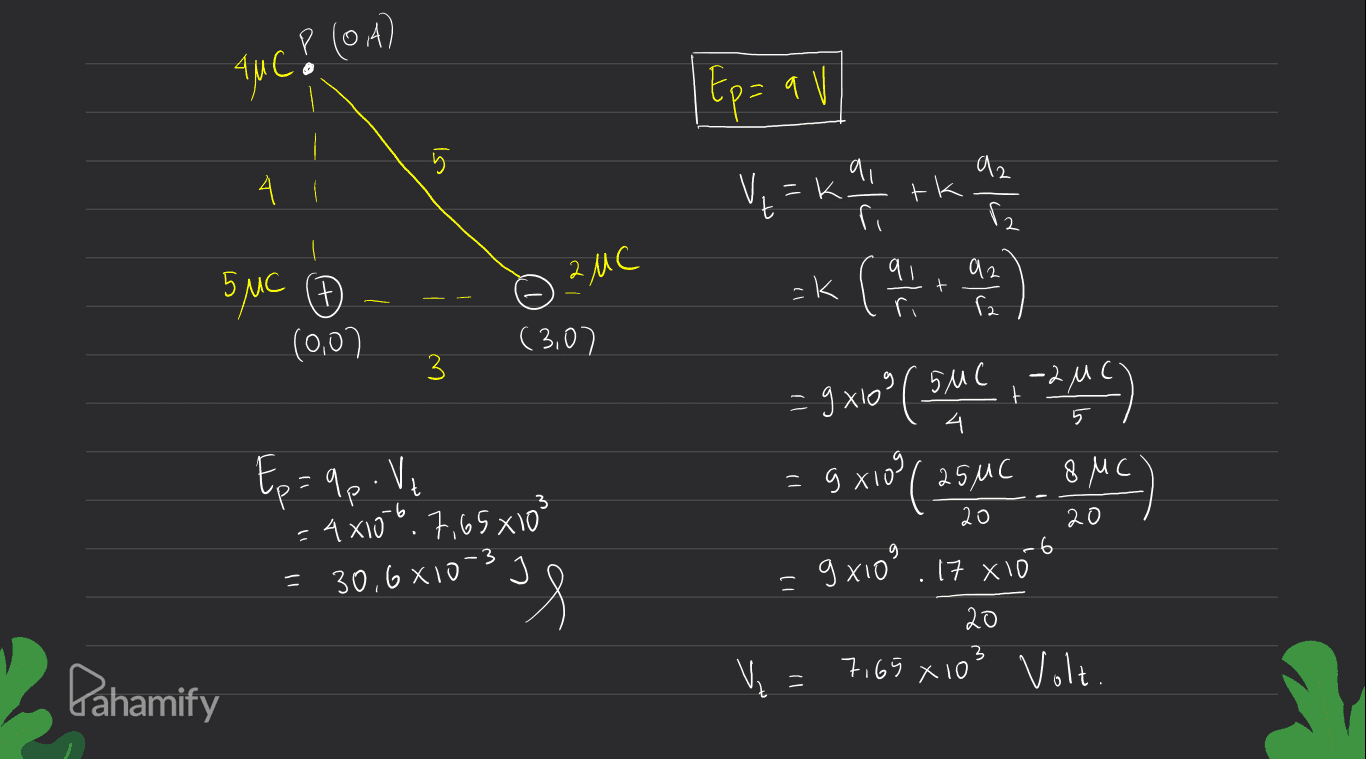 P (0,4)
4μC
4
5
5μC + - -2μC
(0,0) (3,0)
3
Ep = q V
V_t = k q₁/r₁ + k q₂/r₂
= k (q₁/r₁ + q₂/r₂)
= 9×10⁹ (5μC/4 + -2μC/5)
= 9×10⁹ (25μC/20 - 8μC/20)
= 9×10⁹ . 17×10⁻⁶/20
V_t = 7,65 ×10³ Volt.
Ep = q_p . V_t
= 4×10⁻⁶ . 7,65×10³
= 30,6×10⁻³ J
Pahamify